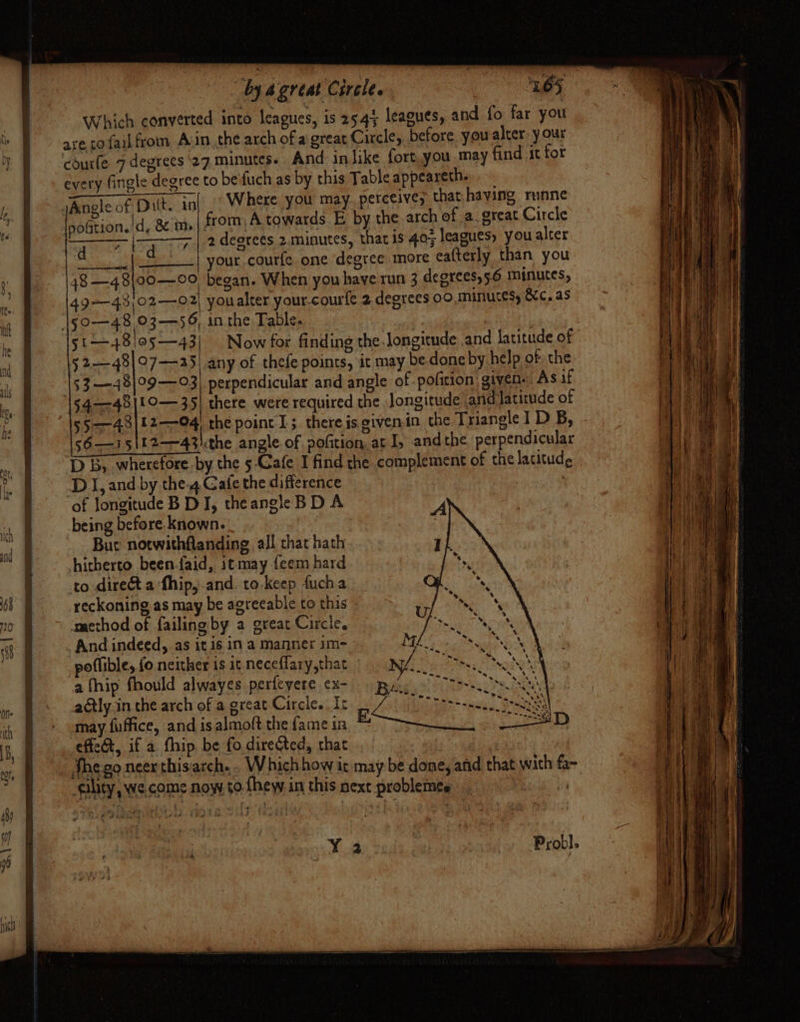 by a great Circle. 165
Which converted into leagues, is 254⅓ leagues, and ſo far you
are to ſail from A in the arch of a great Circle, before you alter your
courſe 7 degrees 27 minutes. And in like ſort you may find it for
every ſingle degree to be ſuch as by this Table appeareth.
Angle of | Diſt. in
poſition. | d, & m.
d | d
48—48|00—00
49—48|02—02
50—48|03—56
51—48|05—43
52—48|07—25
53—48|09—03
54—48|10—35
55—48|12—04
56—15|12—43
Where you may perceive, that having runne
from A towards E by the arch of a great Circle
2 degrees 2 minutes, that is 40⅔ leagues, you alter
your courſe one degree more eaſterly than you
began. When you have run 3 degrees, 56 minutes,
you alter your courſe 2 degrees 00 minutes, &c. as
in the Table.
Now for finding the longitude and latitude of
any of theſe points, it may be done by help of the
perpendicular and angle of poſition given. As if
there were required the longitude and latitude of
the point I; there is given in the Triangle I D B,
the angle of poſition at I, and the perpendicular
D B, wherefore by the 5 Caſe I find the complement of the latitude
D I, and by the 4 Caſe the difference
of longitude B D I, the angle B D A
being before known.
But notwithſtanding all that hath
hitherto been ſaid, it may ſeem hard
to direct a ſhip, and to keep ſuch a
reckoning as may be agreeable to this
method of ſailing by a great Circle.
And indeed, as it is in a manner im-
poſſible, ſo neither is it neceſſary, that
a ſhip ſhould alwayes perſevere ex-
actly in the arch of a great Circle. It
may ſuffice, and is almoſt the ſame in
effect, if a ſhip be ſo directed, that
ſhe go neer this arch. Which how it may be done, and that with fa-
cility, we come now to ſhew in this next probleme.
A
I
O
U
M
N
B
E
D
Y 2 Probl.